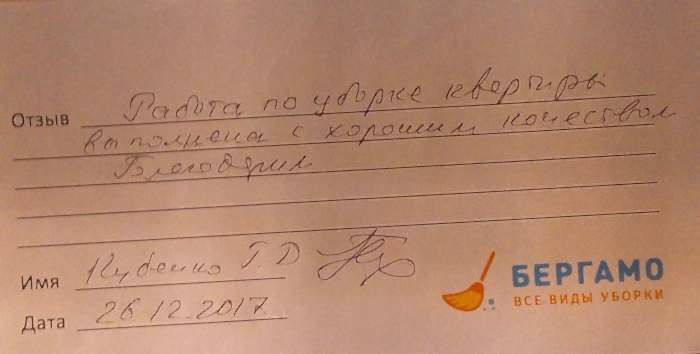 Отзыв Работа по уборке квартиры
выполнена с хорошим качеством
Благодарим
Имя Кубенко Г.Д
Дата 26.12.2017
БЕРГАМО
ВСЕ ВИДЫ УБОРКИ